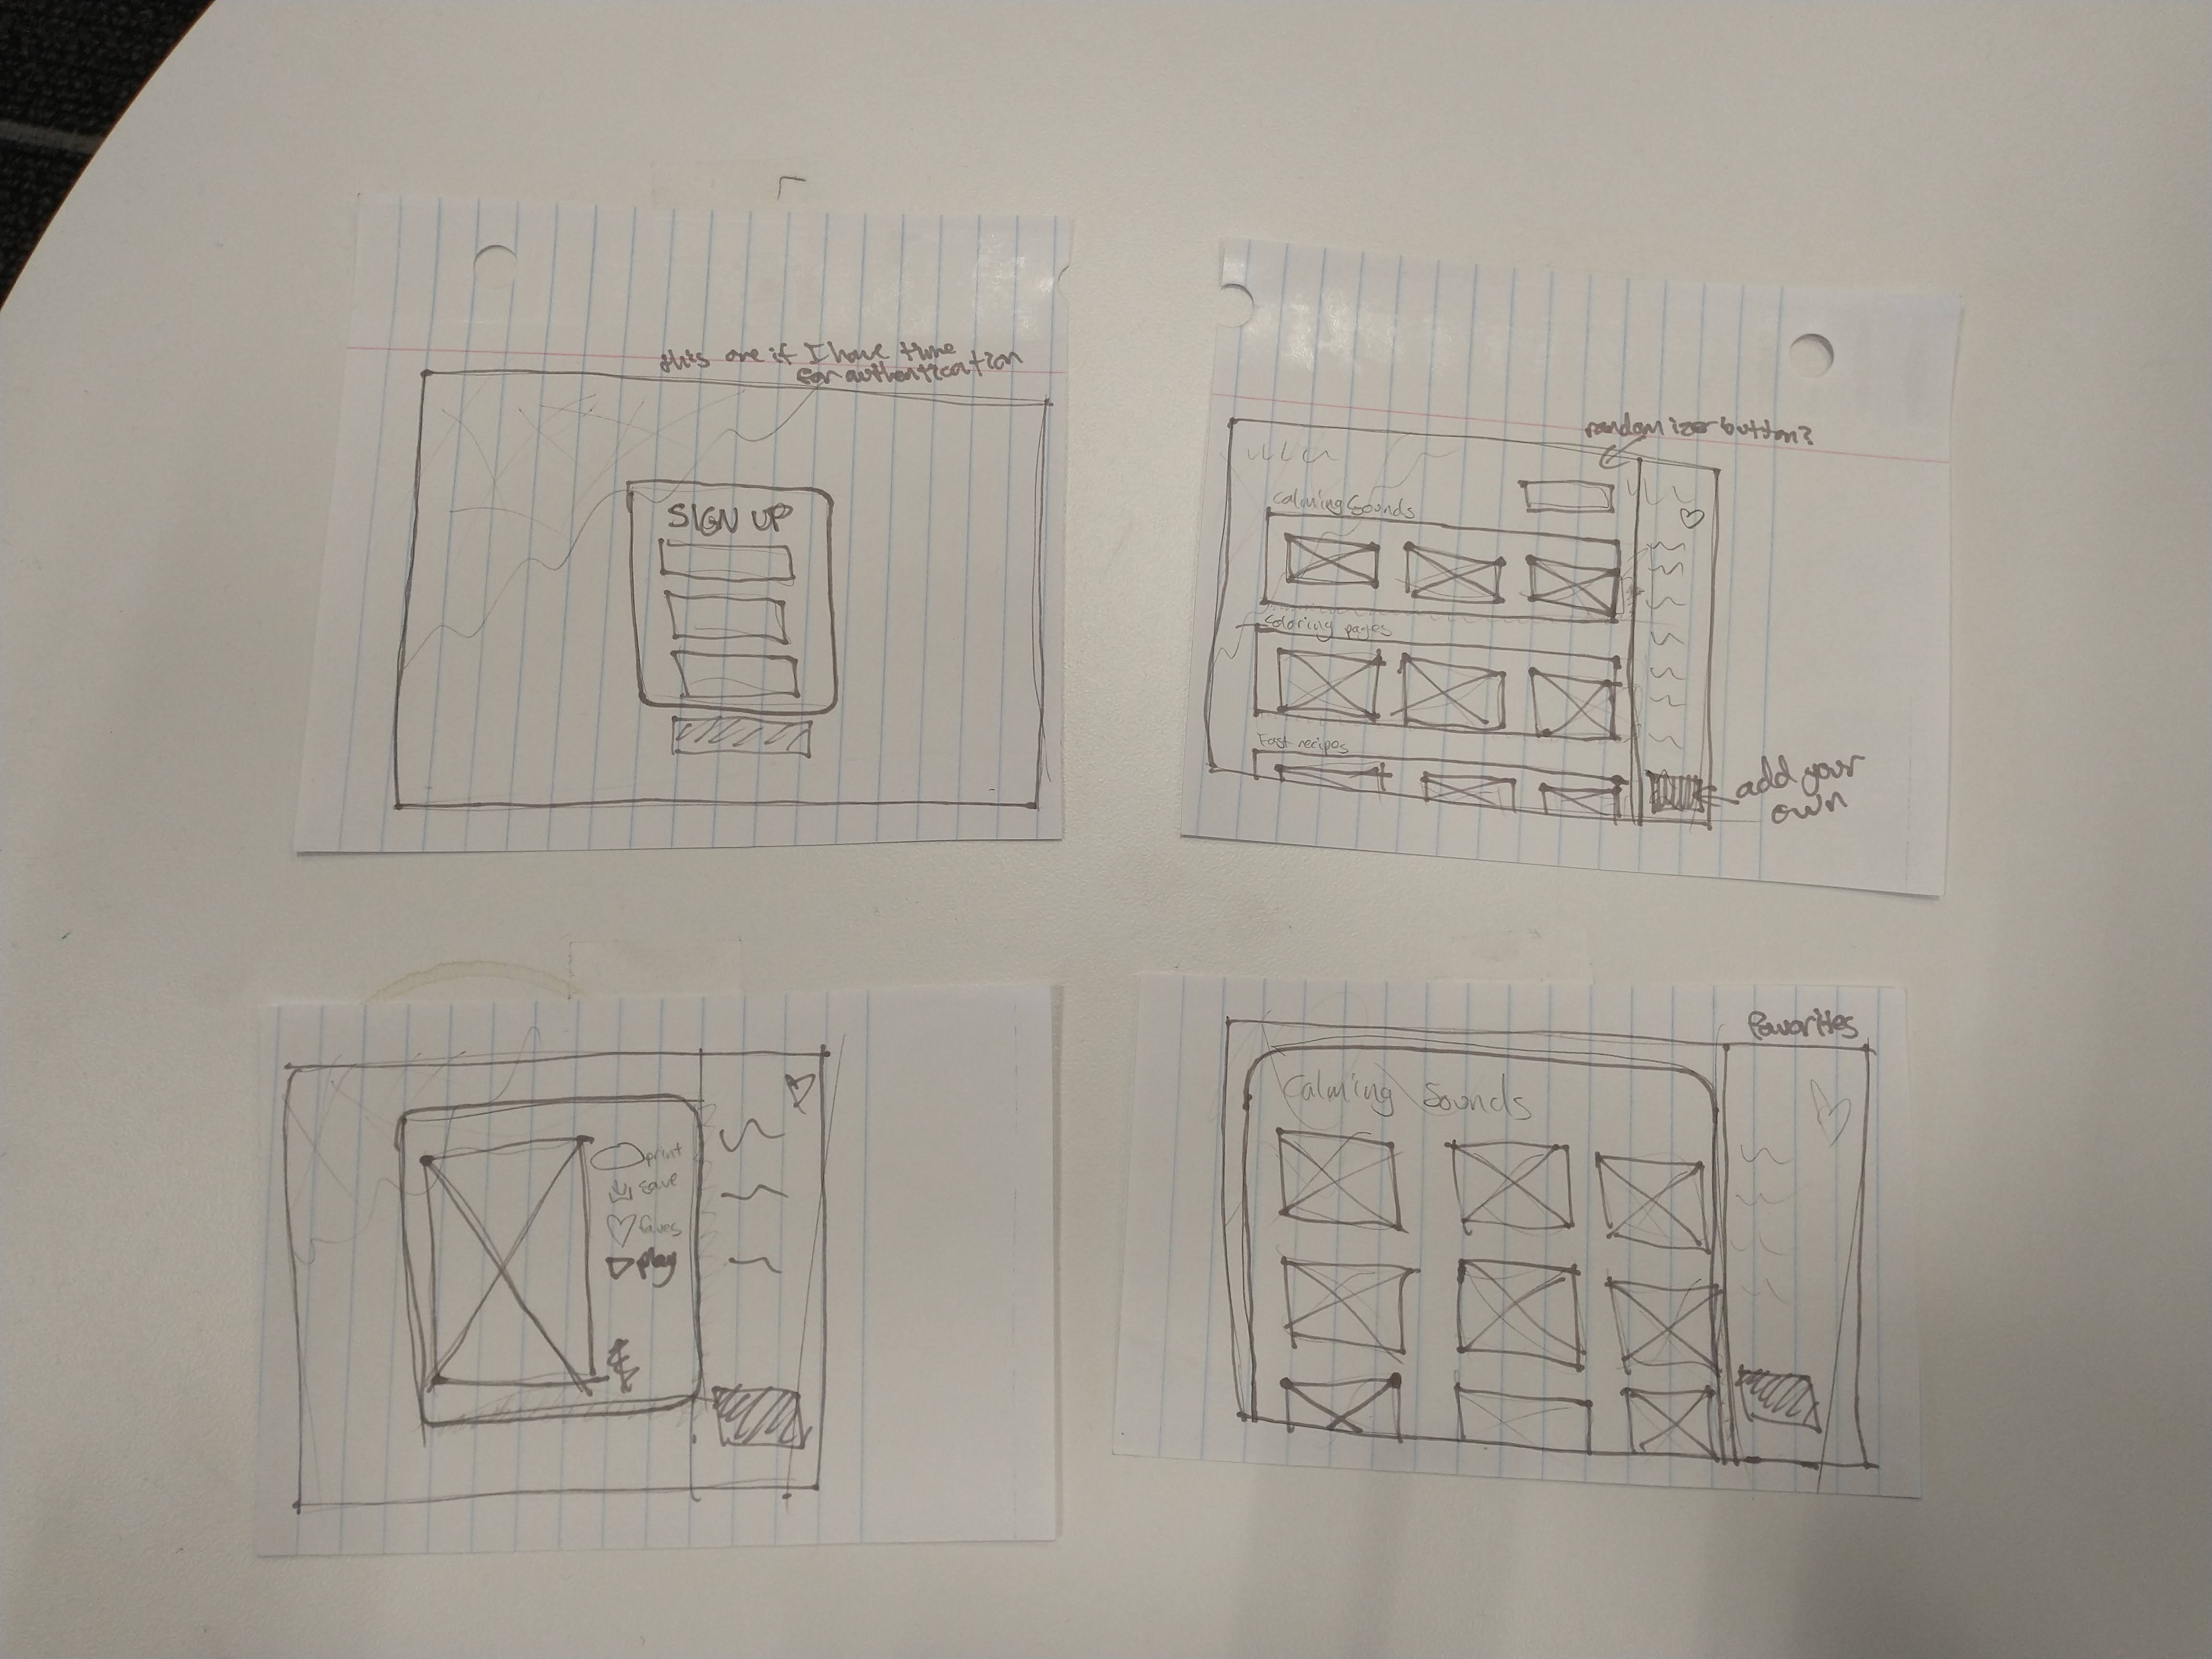 this one if I have time
for authentication
SIGN UP
randomizer button?
Calming Sounds
Coloring pages
Fast recipes
add your
own
print
save
faves
play
favorites
Calming Sounds